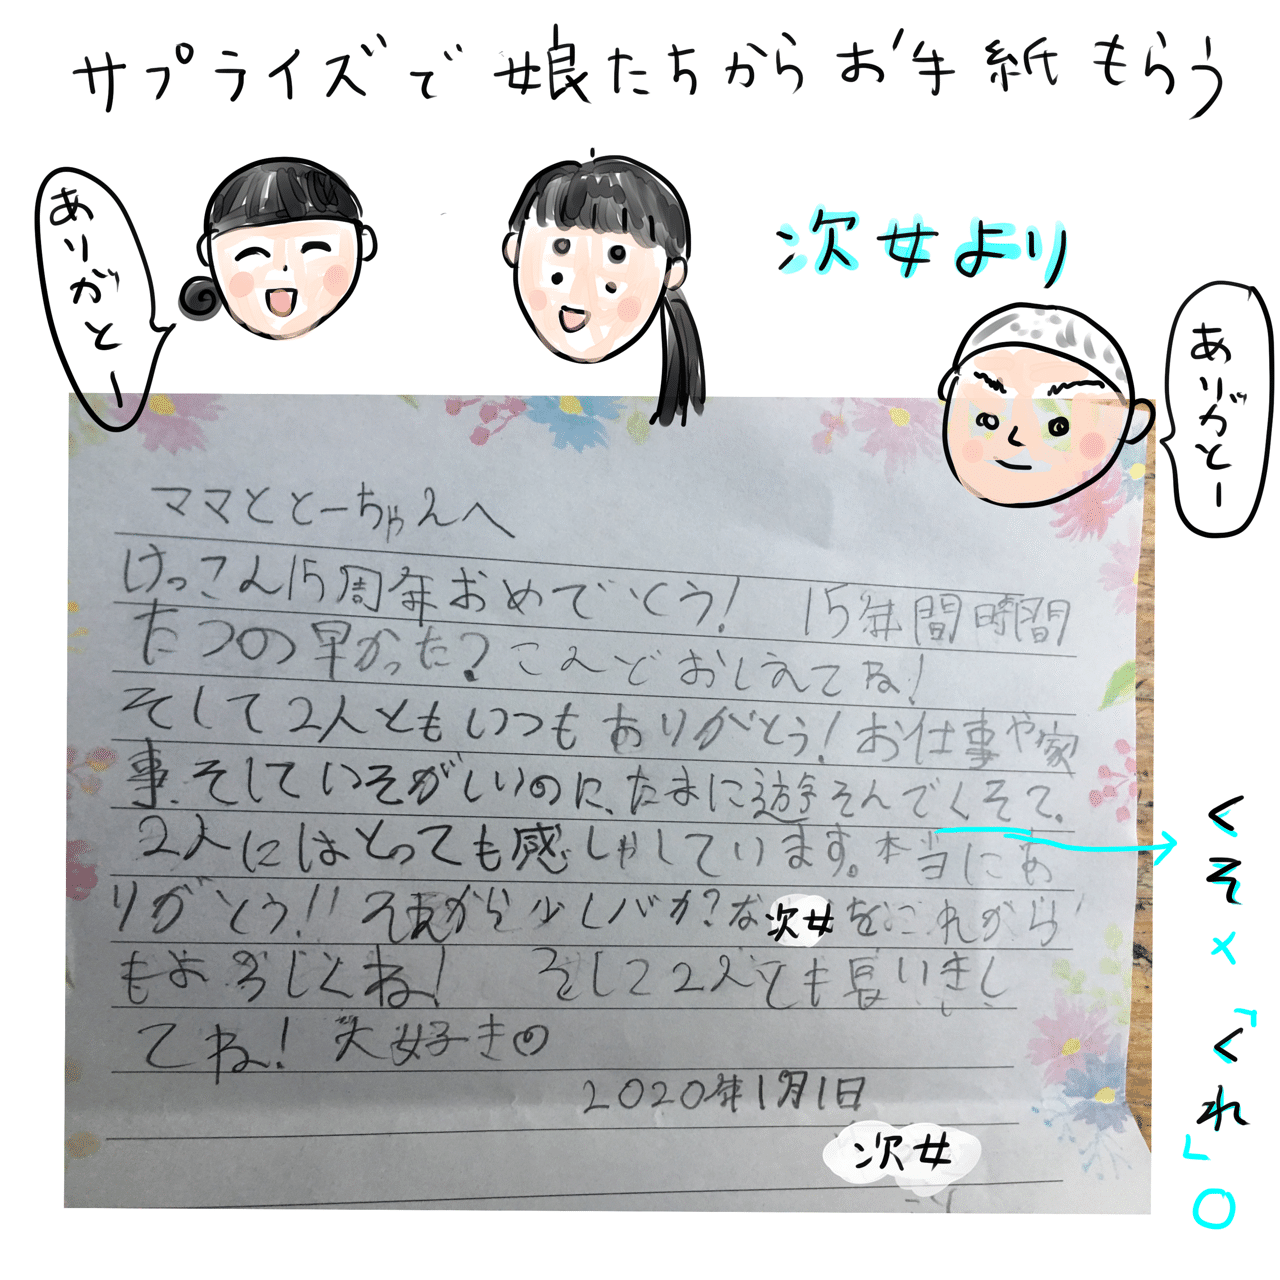 サプライズで娘たちからお手紙もらう
ありがとー
次女より
ありがとー
ママととーちゃんへ
けっこん15周年おめでとくう! 15年間時間
たつの早かった?こんどおしえてね!
そして2人ともいつもありがとう!お仕事や家
事、そしていそがしいのに、たまに遊そんでくそて、
2人にはとっても感しゃしています。本当にあ
りがとう!!それから少しバカ?な次女をこれから
もよろしくね! そして2人とも長いきし
てね!大好きの
2020年1月1日
次女
くそ×
「くれ」○